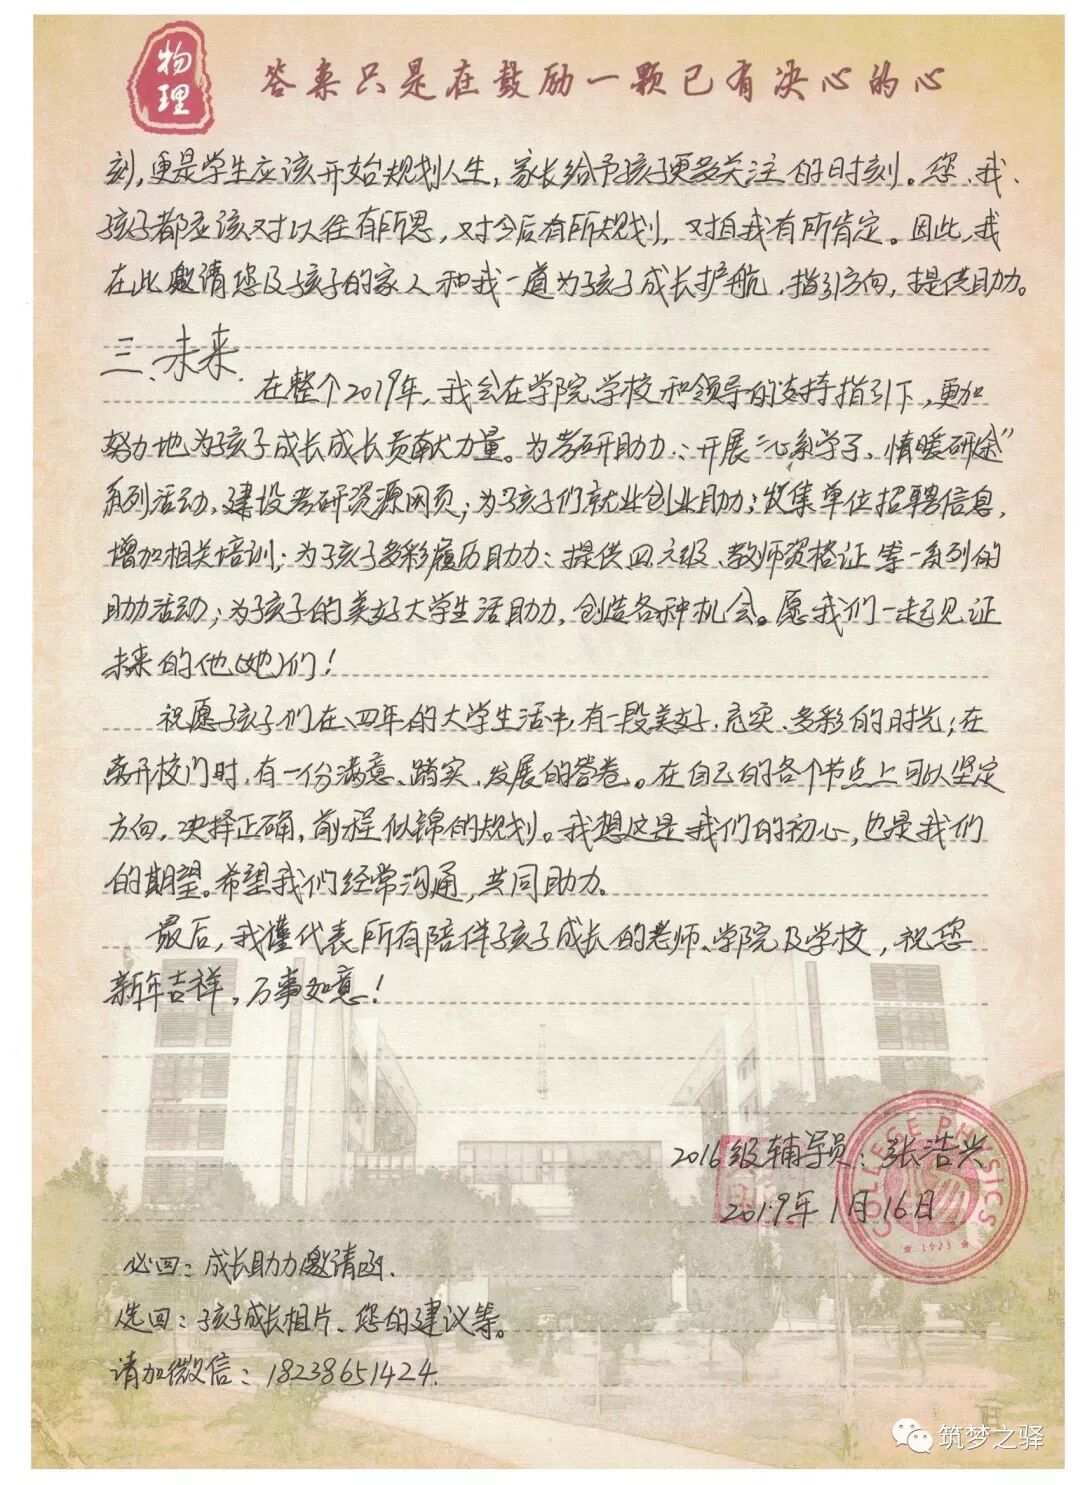 物理
答案只是在鼓励一颗已有决心的心
刻,更是学生应该开始规划人生,家长给予孩子更多关注的时刻。您、我、
孩子都应该对以往有所思,对今后有所规划,对自我有所肯定。因此,我
在此邀请您及孩子的家人和我一道为孩子成长护航,指引方向,提供助力。
三、未来
在整个2019年,我会在学院、学校和领导的支持指引下,更加
努力地为孩子成长成长贡献力量。为考研助力:开展“心系学子,情暖研途”
系列活动,建设考研资源网页;为孩子们就业创业助力:收集单位招聘信息,
增加相关培训;为孩子多彩履历助力:提供四六级、教师资格证等一系列的
助力活动;为孩子的美好大学生活助力,创造各种机会。愿我们一起见证
未来的他(她)们!
祝愿孩子们在四年的大学生活中,有一段美好、充实、多彩的时光;在
离开校门时,有一份满意、踏实、发展的答卷。在自己的各个节点上可以坚定
方向,决择正确,前程似锦的规划。我想这是我们的初心,也是我们
的期望。希望我们经常沟通,共同助力。
最后,我谨代表所有陪伴孩子成长的老师、学院及学校,祝您
新年吉祥,万事如意!
2016级辅导员:张浩兴
2019年1月16日
COLLEGE PHYSICS
1923
必回:成长助力邀请函.
选回:孩子成长相片、您的建议等。
请加微信:18238651424.
筑梦之驿